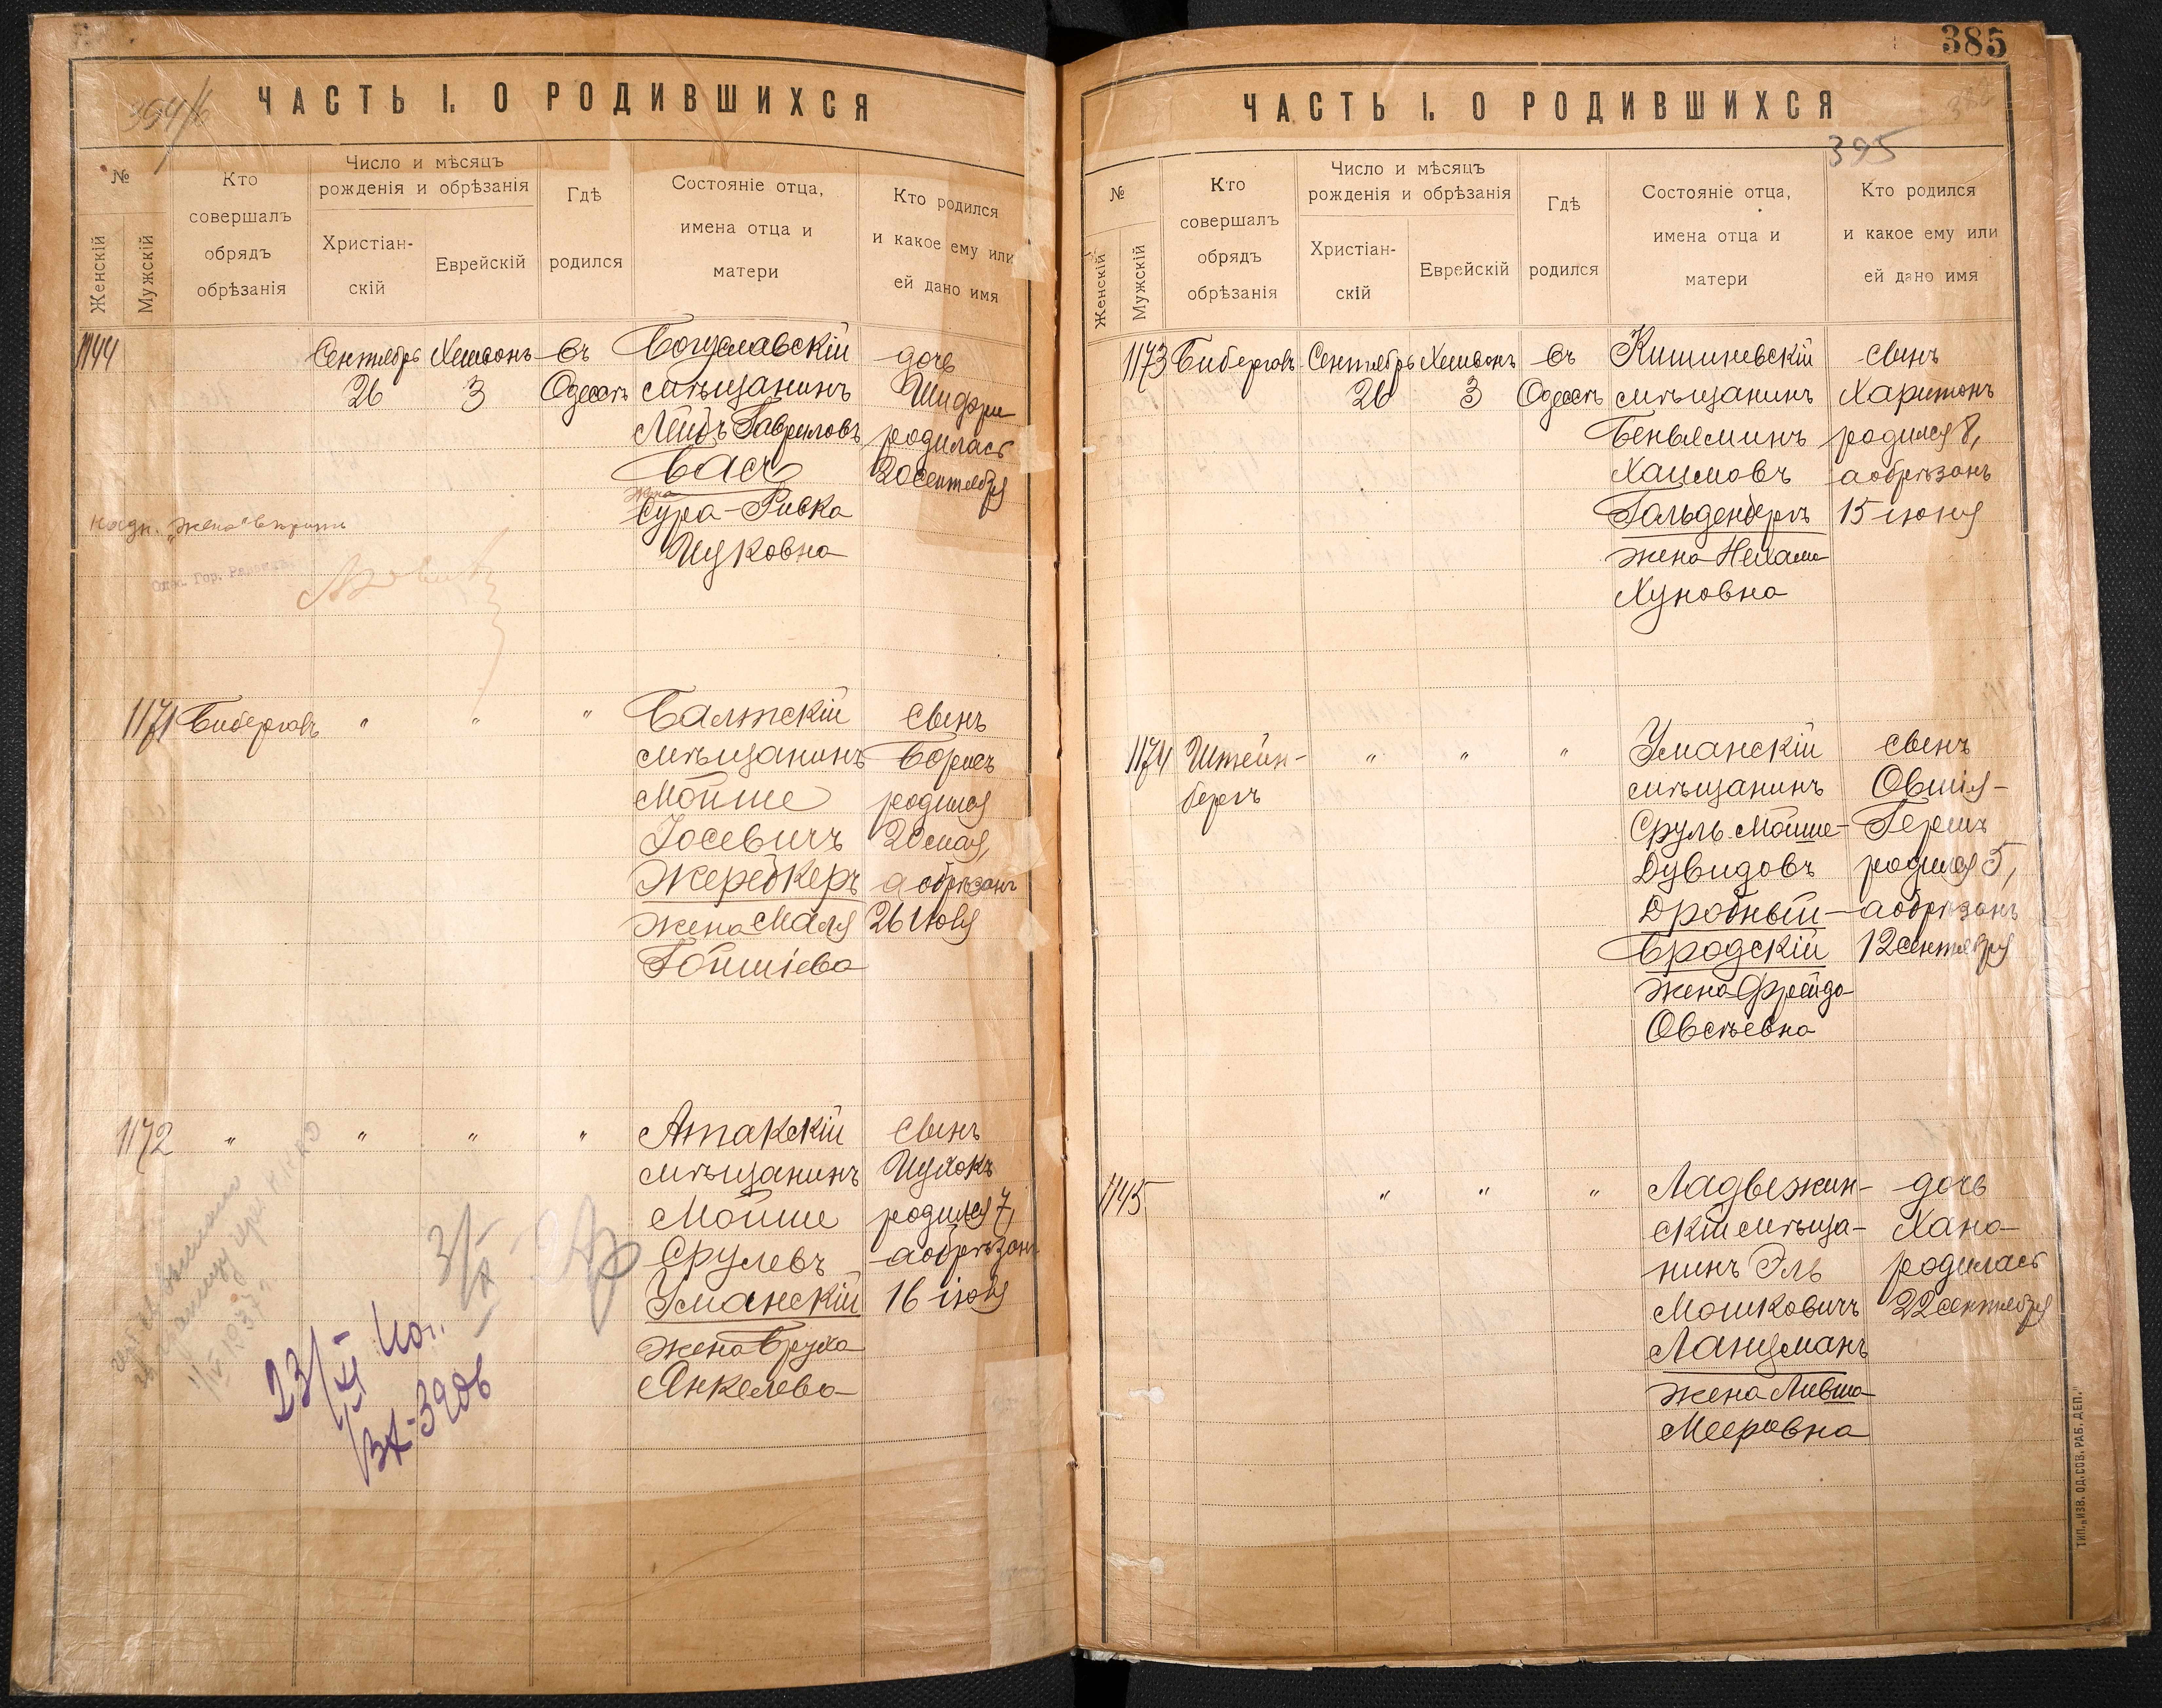 394/6
ЧАСТЬ I. О РОДИВШИХСЯ
№
Женскій
Мужскій
Кто
совершалъ
обрядъ
обрѣзанія
Число и мѣсяцъ
рожденія и обрѣзанія
Христіан-
скій
Еврейскій
Гдѣ
родился
Состояніе отца,
имена отца и
матери
Кто родился
и какое ему или
ей дано имя
1144
Сентябрь
26
Хешвонъ
3
въ
Одессѣ
Богуславскій
мѣщанинъ
Лейбъ Гавриловъ
Басъ
жена
Сура-Ривка
Ицковна
дочь
Шифри
родилась
20 сентября
надп. "жена" вѣрить
1171
Биберговъ
"
"
"
Балтскій
мѣщанинъ
Мойше
Іосевичъ
Жеребкеръ
жена Маля
Гойшіева
сынъ
Борисъ
родился
20 мая,
а обрѣзанъ
26 іюня
1172
"
"
"
"
Атакскій
мѣщанинъ
Мойше
Срулевъ
Уманскій
жена Бруха
Янкелева
сынъ
Ицхокъ
родился 7,
а обрѣзанъ
16 іюня
1/IV 1937 г.
3/X
23/XI
ВА-3906
385
ЧАСТЬ I. О РОДИВШИХСЯ
395
№
Женскій
Мужскій
Кто
совершалъ
обрядъ
обрѣзанія
Число и мѣсяцъ
рожденія и обрѣзанія
Христіан-
скій
Еврейскій
Гдѣ
родился
Состояніе отца,
имена отца и
матери
Кто родился
и какое ему или
ей дано имя
1173
Биберговъ
Сентябрь
26
Хешвонъ
3
въ
Одессѣ
Кишиневскій
мѣщанинъ
Беньяминъ
Хаимовъ
Гольденбергъ
жена Нехама
Хуновна
сынъ
Харитонъ
родился 8,
а обрѣзанъ
15 іюня
1174
Штейн-
бергъ
"
"
"
Уманскій
мѣщанинъ
Сруль-Мойше-
Дувидовъ
Дробный-
Бродскій
жена Фрейда
Овсѣевна
сынъ
Овшія-
Гершъ
родился 5,
а обрѣзанъ
12 сентября
1145
"
"
"
Ладыжин-
скій мѣща-
нинъ Эль
Мошковичъ
Ланцманъ
жена Ливша
Мееровна
дочь
Хана
родилась
22 сентября
ТИП. „ИЗВ. ОД. СОВ. РАБ. ДЕП."